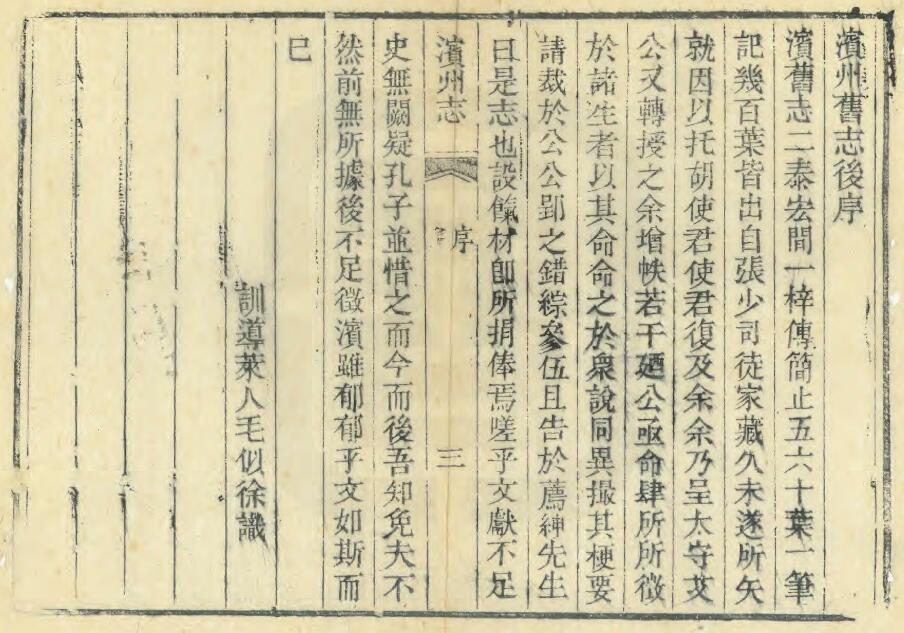 濱州舊志後序
濱舊志二泰宏間一梓傳簡止五六十葉一筆
記幾百葉皆出自張少司徒家藏久未遂所矢
就因以托胡使君使君復及余余乃呈太守艾
公又轉授之余增帙若干廼公亟命肆所所徵
於諸生者以其命命之於衆說同異撮其梗要
請裁於公公郢之錯綜參伍且告於薦紳先生
曰是志也設餼材卽所捐俸焉嗟乎文獻不足
濱州志 序 三
史無闕疑孔子並惜之而今而後吾知免夫不
然前無所據後不足徵濱雖郁郁乎文如斯而
巳
訓導萊人毛似徐識